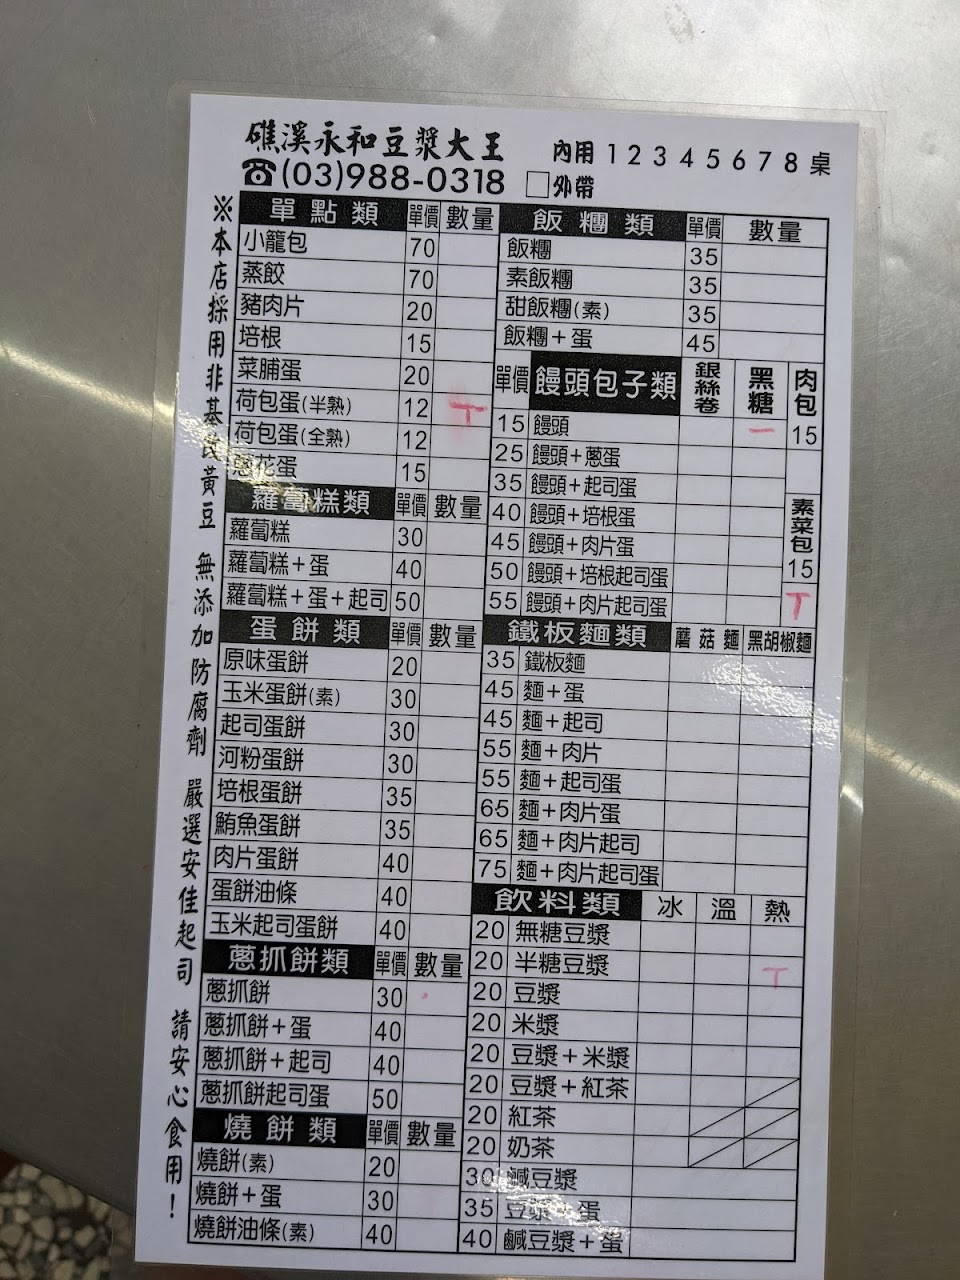 礁溪永和豆漿大王
☎(03)988-0318
內用 1 2 3 4 5 6 7 8 桌
□外帶
※本店採用非基改黃豆 無添加防腐劑 嚴選安佳起司 請安心食用！
單點類 單價 數量
小籠包 70
蒸餃 70
豬肉片 20
培根 15
菜脯蛋 20
荷包蛋(半熟) 12 T
荷包蛋(全熟) 12
蔥花蛋 15
蘿蔔糕類 單價 數量
蘿蔔糕 30
蘿蔔糕+蛋 40
蘿蔔糕+蛋+起司 50
蛋餅類 單價 數量
原味蛋餅 20
玉米蛋餅(素) 30
起司蛋餅 30
河粉蛋餅 30
培根蛋餅 35
鮪魚蛋餅 35
肉片蛋餅 40
蛋餅油條 40
玉米起司蛋餅 40
蔥抓餅類 單價 數量
蔥抓餅 30
蔥抓餅+蛋 40
蔥抓餅+起司 40
蔥抓餅起司蛋 50
燒餅類 單價 數量
燒餅(素) 20
燒餅+蛋 30
燒餅油條(素) 40
飯糰類 單價 數量
飯糰 35
素飯糰 35
甜飯糰(素) 35
飯糰+蛋 45
單價 饅頭包子類 銀絲卷 黑糖 肉包 15
15 饅頭 一
25 饅頭+蔥蛋
35 饅頭+起司蛋
40 饅頭+培根蛋
45 饅頭+肉片蛋
50 饅頭+培根起司蛋
55 饅頭+肉片起司蛋
素菜包 15 T
鐵板麵類 蘑菇麵 黑胡椒麵
35 鐵板麵
45 麵+蛋
45 麵+起司
55 麵+肉片
55 麵+起司蛋
65 麵+肉片蛋
65 麵+肉片起司
75 麵+肉片起司蛋
飲料類 冰 溫 熱
20 無糖豆漿
20 半糖豆漿 T
20 豆漿
20 米漿
20 豆漿+米漿
20 豆漿+紅茶
20 紅茶
20 奶茶
30 鹹豆漿
35 豆漿+蛋
40 鹹豆漿+蛋